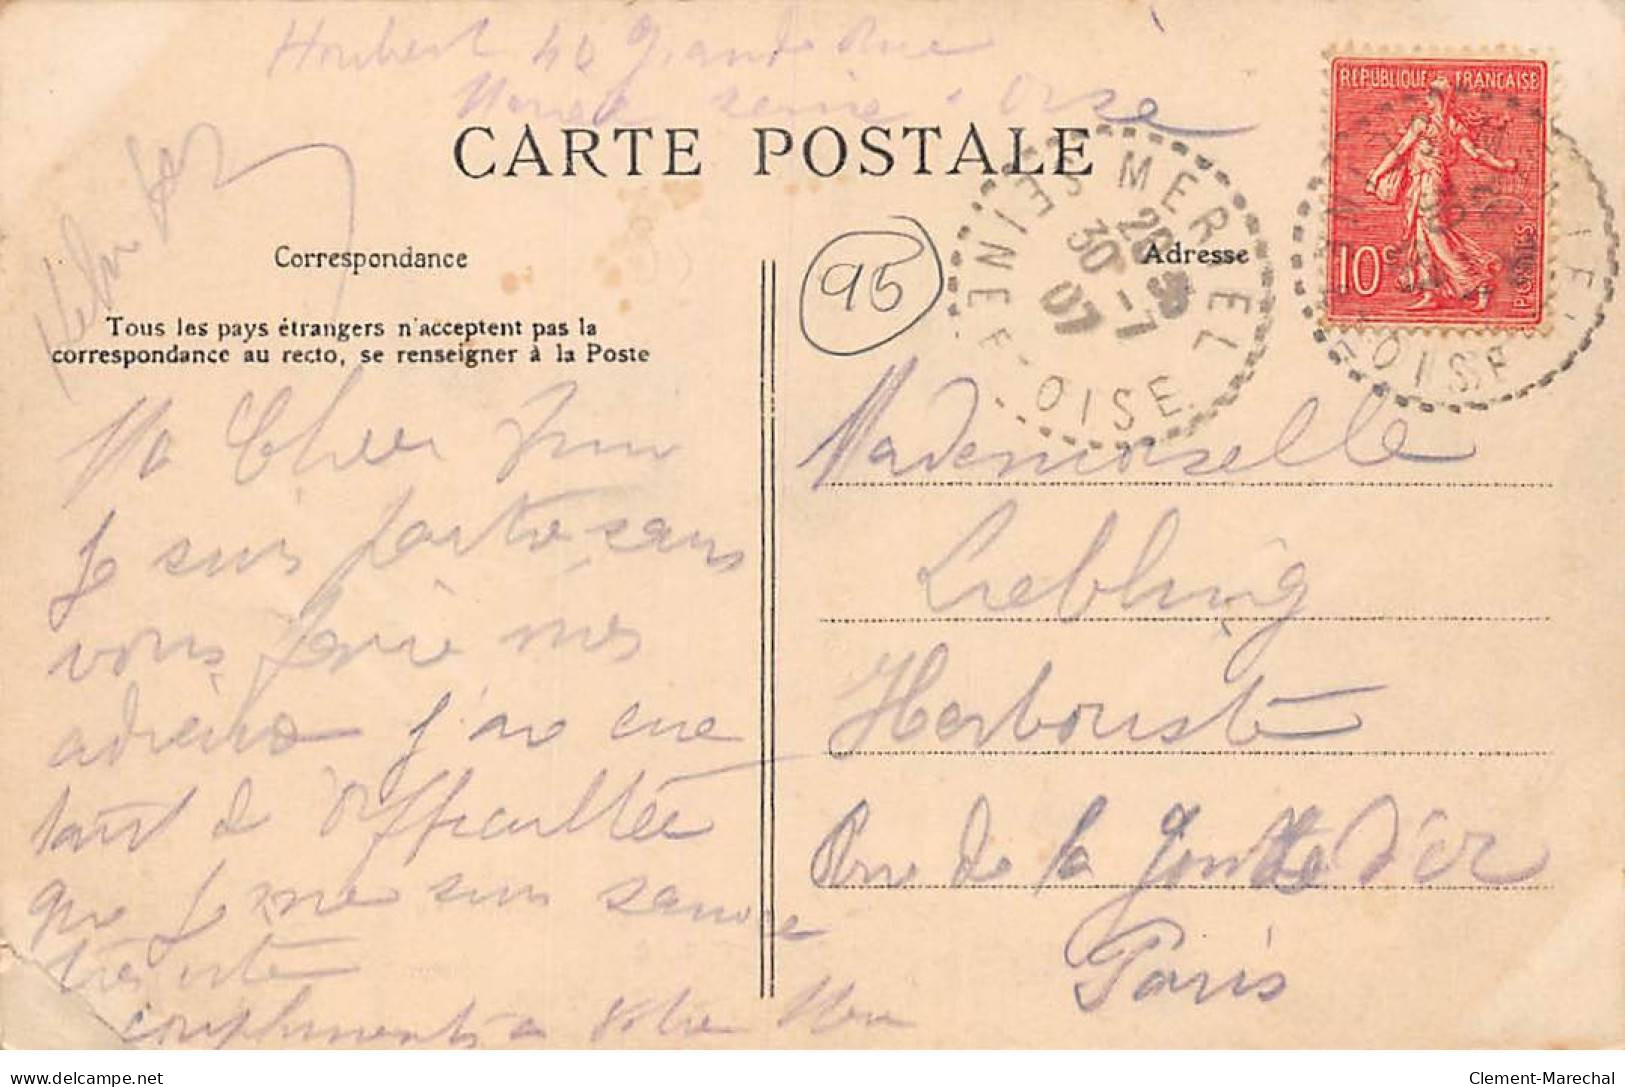 Houbert 40 Grande Rue
Seine & Oise
CARTE POSTALE
REPUBLIQUE FRANÇAISE
10
POSTES
MERIEL
SEINE-E-OISE
30 -7
07
95
Correspondance
Adresse
Tous les pays étrangers n'acceptent pas la
correspondance au recto, se renseigner à la Poste
Ma Cher
Je suis partie sans
vous faire mes
adieux j'ai eue
tant de difficultée
que je me suis sauvée
très vite
compliments a votre
Mademoiselle
Liebling
Herboriste
Rue de la Goutte d'or
Paris
delcampe.net
Clement-Marechal